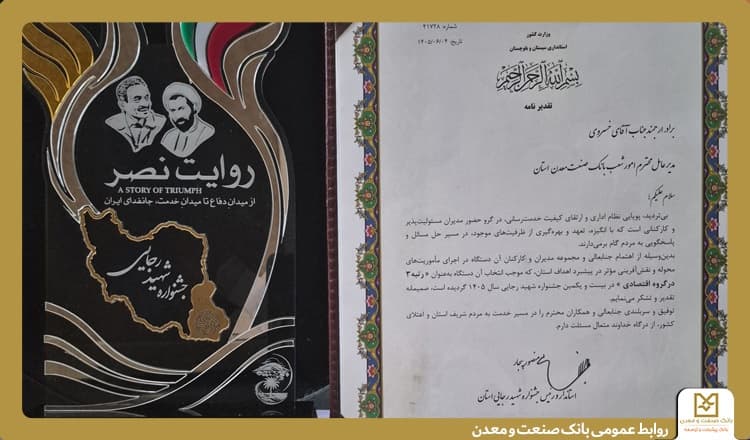 روایت نصر
A STORY OF TRIUMPH
از میدان دفاع تا میدان خدمت، جانفدای ایران
جشنواره شهید رجایی
شماره: ۲۱۷۲۸
تاریخ: ۱۴۰۵/۰۶/۰۴
وزارت کشور
استانداری سیستان و بلوچستان
بسم الله الرحمن الرحیم
تقدیر نامه
برادر ارجمند جناب آقای خسروی
مدیر عامل محترم امور شعب بانک صنعت معدن استان
سلام علیکم؛
بی‌تردید، پویایی نظام اداری و ارتقای کیفیت خدمت‌رسانی، در گرو حضور مدیران مسئولیت‌پذیر
و کارکنانی است که با انگیزه، تعهد و بهره‌گیری از ظرفیت‌های موجود، در مسیر حل مسائل و
پاسخگویی به مردم گام برمی‌دارند.
بدین‌وسیله از اهتمام جنابعالی و مجموعه مدیران و کارکنان آن دستگاه در اجرای مأموریت‌های
محوله و نقش‌آفرینی مؤثر در پیشبرد اهداف استان، که موجب انتخاب آن دستگاه به‌عنوان «رتبه ۳
در گروه اقتصادی» در بیست و یکمین جشنواره شهید رجایی سال ۱۴۰۵ گردیده است، صمیمانه
تقدیر و تشکر می‌نمایم.
توفیق و سربلندی جنابعالی و همکاران محترم را در مسیر خدمت به مردم شریف استان و اعتلای
کشور، از درگاه خداوند متعال مسئلت دارم.
منصور بیجار
استاندار و رئیس جشنواره شهید رجایی استان
روابط عمومی بانک صنعت و معدن
بانک صنعت و معدن
بانک پیشرفت و توسعه